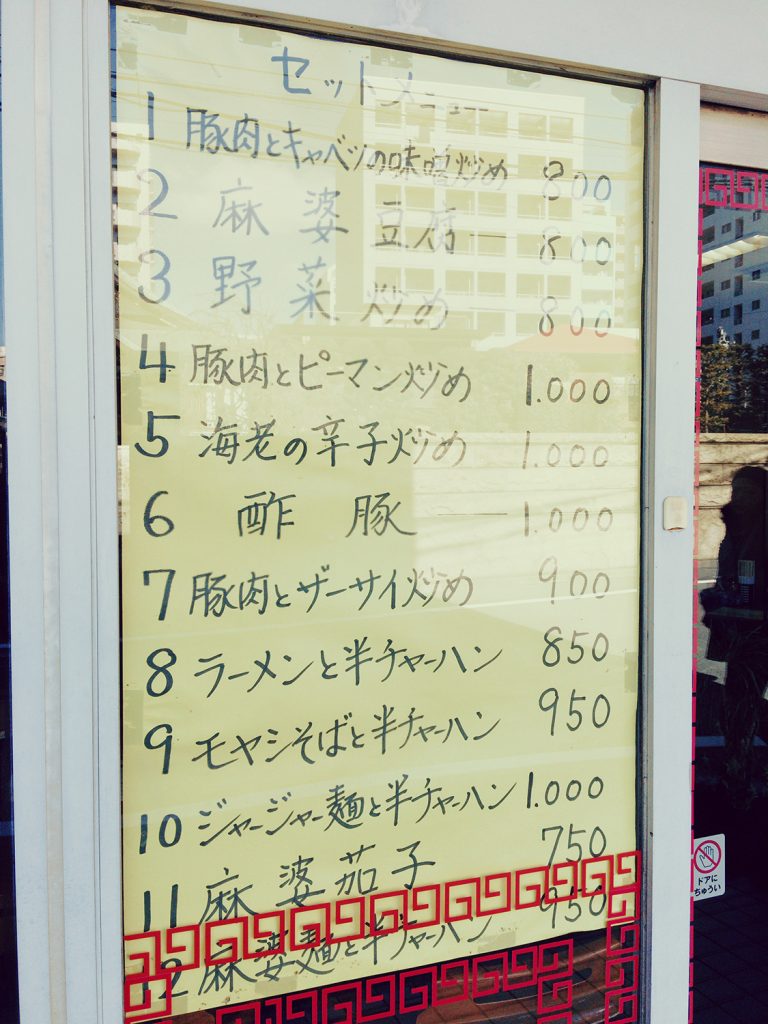 セットメニュー
1 豚肉とキャベツの味噌炒め 800
2 麻婆豆腐 — 800
3 野菜炒め 800
4 豚肉とピーマン炒め 1.000
5 海老の辛子炒め 1.000
6 酢豚 — 1.000
7 豚肉とザーサイ炒め 900
8 ラーメンと半チャーハン 850
9 モヤシそばと半チャーハン 950
10 ジャージャー麺と半チャーハン 1.000
11 麻婆茄子 750
12 麻婆麺と半チャーハン 950
ドアに
ちゅうい